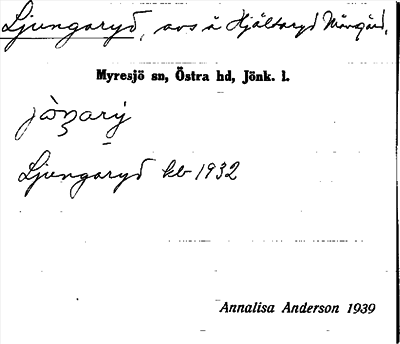 Ljungaryd, avs å Hjältaryd Mångård,
Myresjö sn, Östra hd, Jönk. l.
Ljungaryd kb 1932
Annalisa Anderson 1939